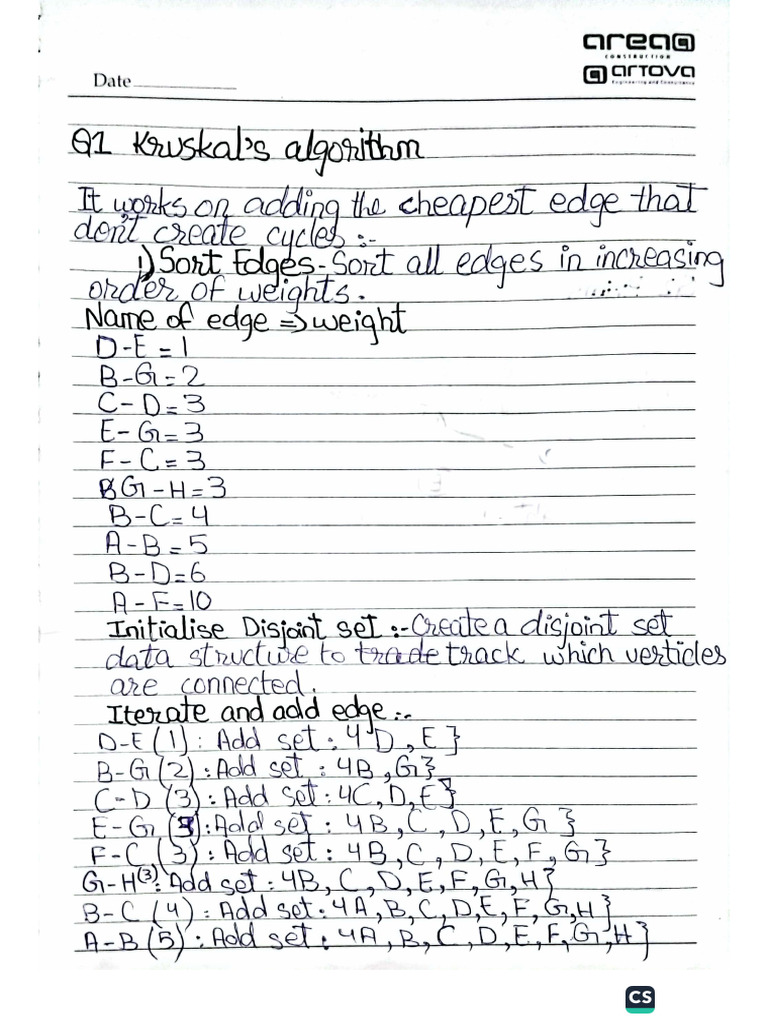 area
CONSTRUCTION
artova
Engineering and Consultancy
Date
Q1 Kruskal's algorithm
It works on adding the cheapest edge that
don't create cycles :-
1) Sort Edges - Sort all edges in increasing
order of weights.
Name of edge => weight
D-E = 1
B-G = 2
C-D = 3
E-G = 3
F-C = 3
G-H = 3
B-C = 4
A-B = 5
B-D = 6
A-F = 10
Initialise Disjoint set :- Create a disjoint set
data structure to trade track which verticles
are connected.
Iterate and add edge :-
D-E (1) : Add set : {D, E}
B-G (2) : Add set : {B, G}
C-D (3) : Add set : {C, D, E}
E-G (3) : Add set : {B, C, D, E, G}
F-C (3) : Add set : {B, C, D, E, F, G}
G-H (3) : Add set : {B, C, D, E, F, G, H}
B-C (4) : Add set : {A, B, C, D, E, F, G, H}
A-B (5) : Add set : {A, B, C, D, E, F, G, H}
CS